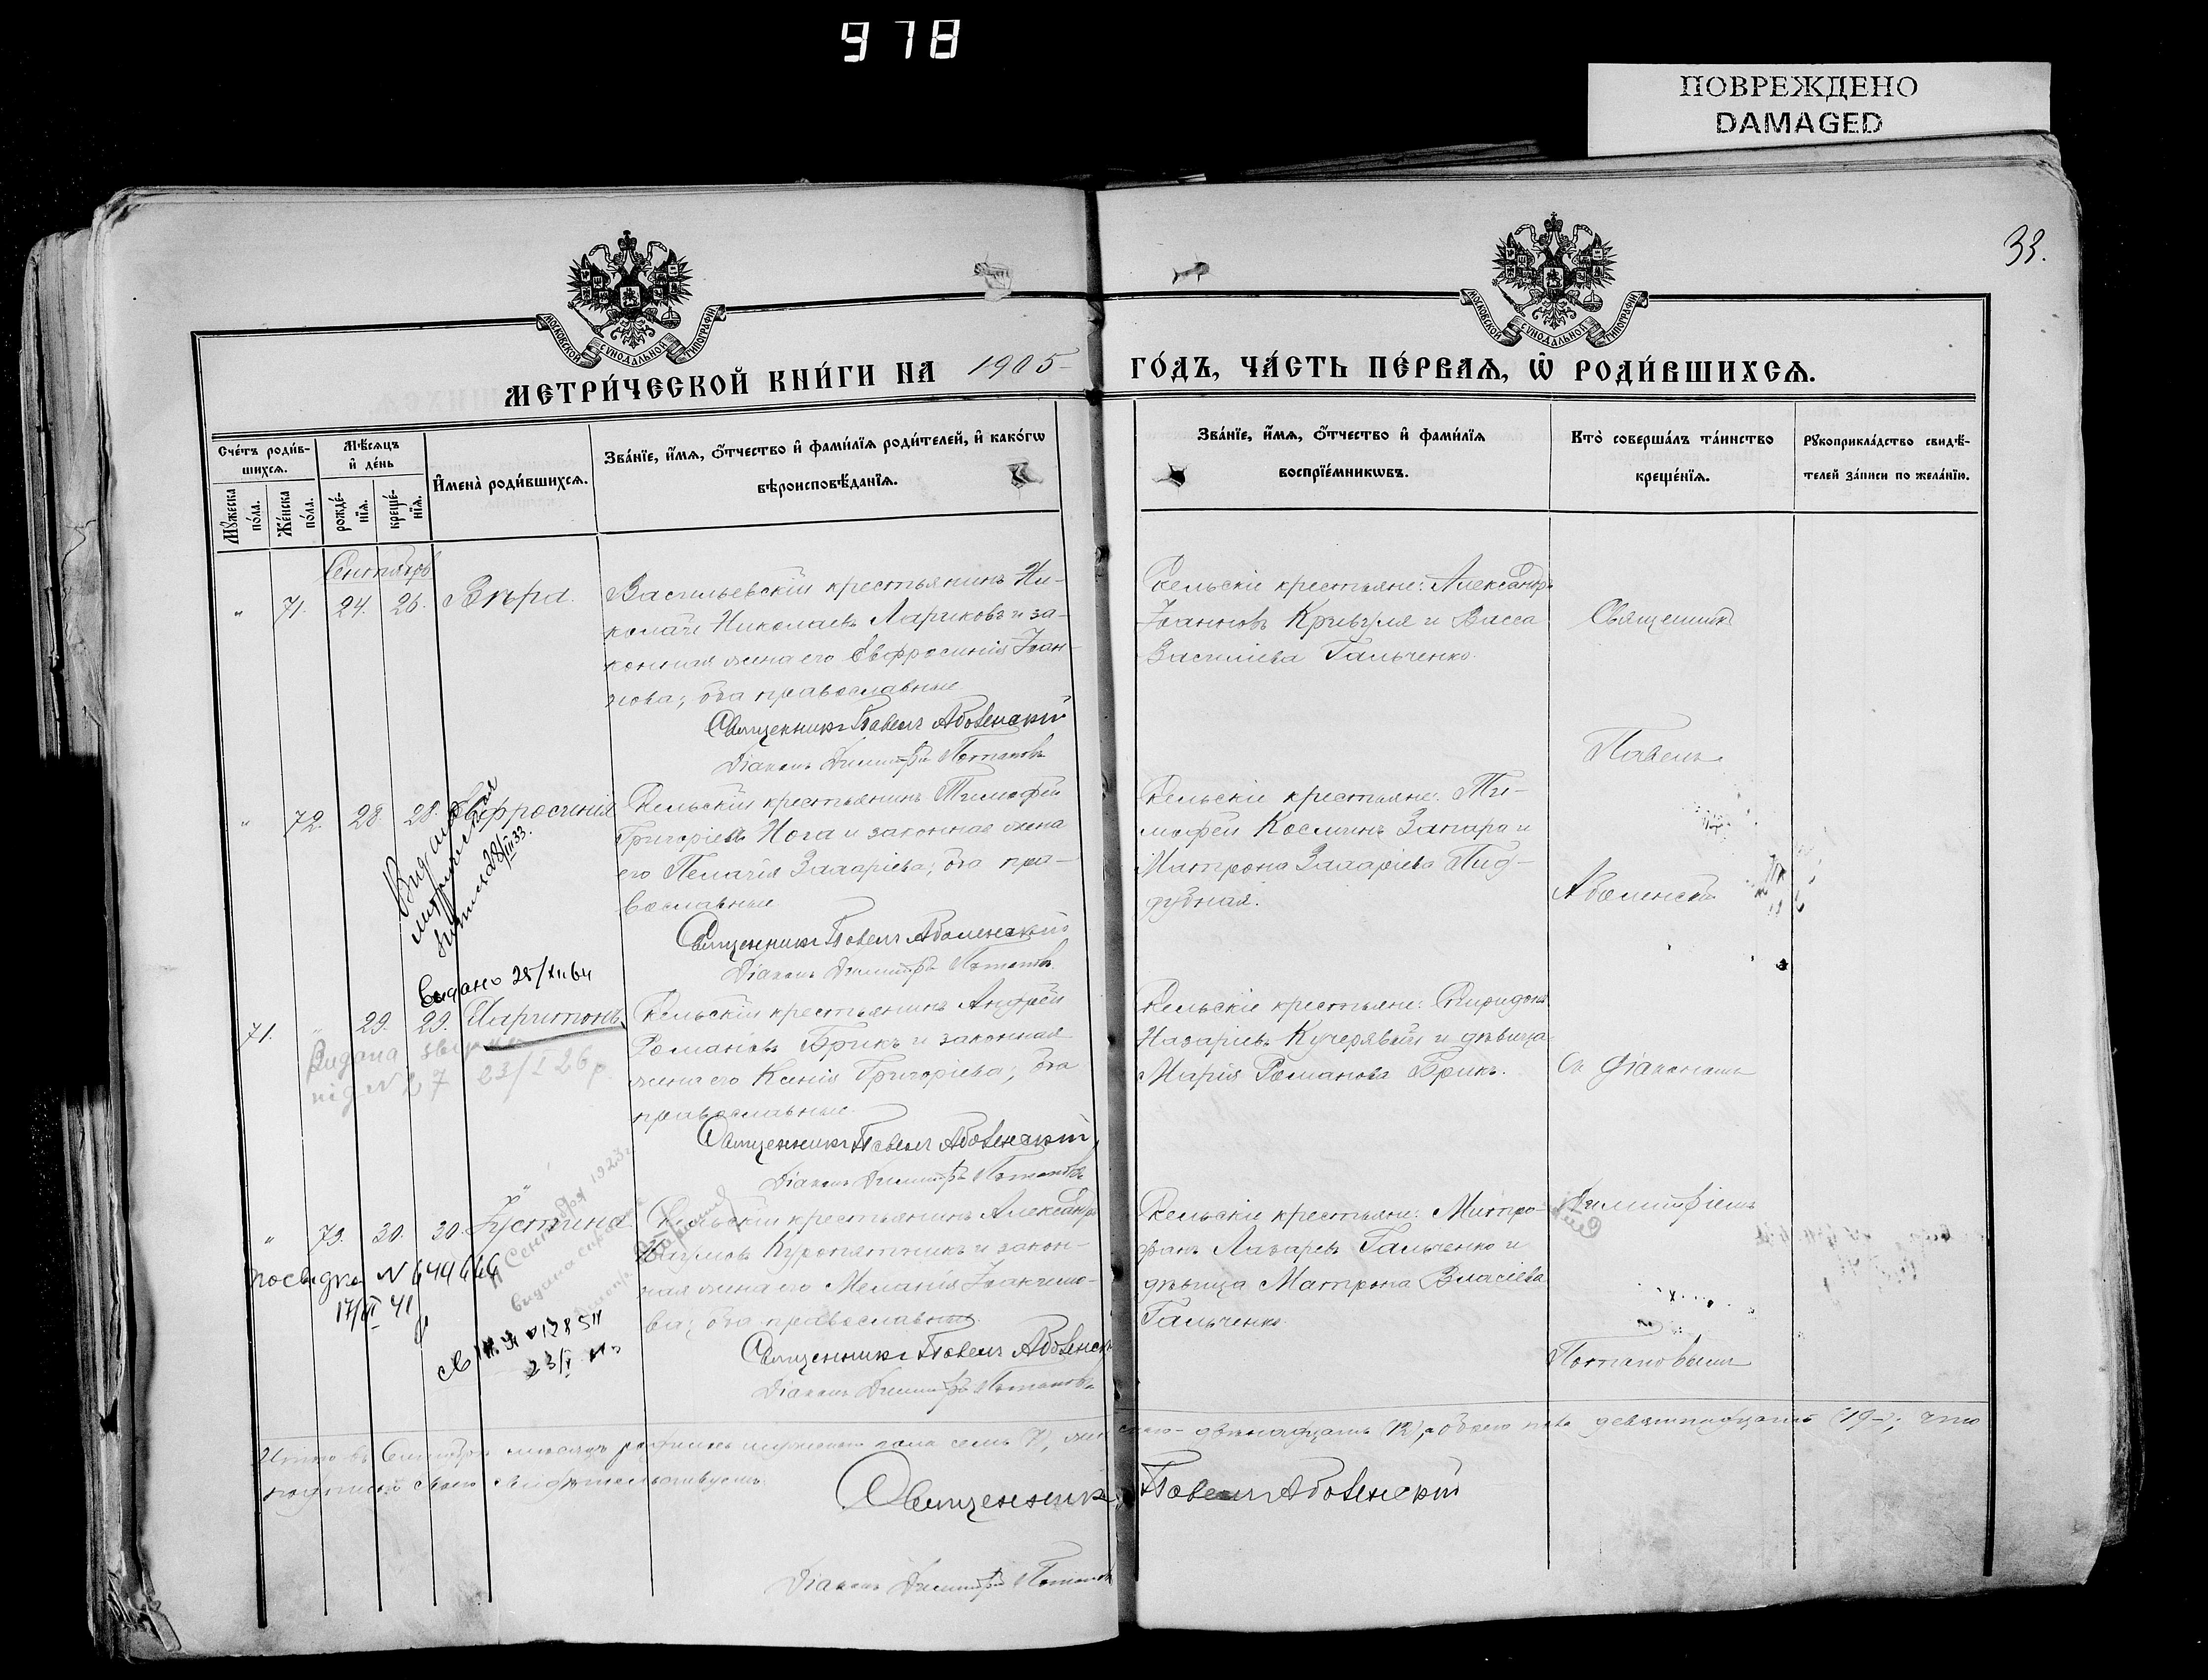 978
ПОВРЕЖДЕНО
DAMAGED
33.
МОСКОВСКОЙ СУНОДАЛЬНОЙ ТИПОГРАФІИ
МОСКОВСКОЙ СУНОДАЛЬНОЙ ТИПОГРАФІИ
МЕТРИ́ЧЕСКОЙ КНИ́ГИ НА 1905 ГО́ДЪ, ЧА́СТЬ ПЕ́РВАѦ, Ѽ РОДИ́ВШИХСѦ.
Сче́тъ роди́в-
шихсѧ.
Мꙋ́жеска по́ла.
Же́нска по́ла.
Мѣ́сѧцъ
и҆ де́нь
рожде́-
нїѧ.
креще́-
нїѧ.
И҆мена̀ роди́вшихсѧ.
Зва́нїе, и҆́мѧ, ѻ҆́тчество и҆ фами́лїѧ роди́телей, и҆ како́гѡ
вѣроисповѣ́данїѧ.
Зва́нїе, и҆́мѧ, ѻ҆́тчество и҆ фами́лїѧ
воспрїе́мникѡвъ.
Кто̀ соверша́лъ та́инство
креще́нїѧ.
Рꙋкоприкла́дство свидѣ́-
телей за́писи по жела́нїю.
Сентябрь
" 71. 24. 26. Вѣра.
Васильевскій крестьянинъ Ни-
колай Николаевъ Лариковъ и за-
конная жена его Евфросинія Іоан-
нова; оба православные
Священникъ Павелъ Аболенскій
Діаконъ Димитрій Потаповъ
Бельскіе крестьяне: Александръ
Іоанновъ Кривуля и Васса
Василіева Гальченко.
Священникъ
Павелъ
" 72. 28. 28. Евфросинія
Видана
метрична
28/III 33.
Бельскій крестьянинъ Тимофей
Григоріевъ Нога и законная жена
его Пелагія Захаріева; оба пра-
вославные
Священникъ Павелъ Аболенскій
Діаконъ Димитрій Потаповъ
Бельскіе крестьяне: Ти-
мофей Космичъ Запара и
Матрона Захаріева Пид-
дубная.
Аболенскій
видано 28/XII 64
71. " 29. 29. Харитонъ
Видана
під N 27 23/I 26 р.
Бельскій крестьянинъ Андрей
Романовъ Брикъ и законная
жена его Ксенія Григоріева; оба
православные.
Священникъ Павелъ Аболенскій
Діаконъ Димитрій Потаповъ
Бельскіе крестьяне: Спиридонъ
Назаріевъ Кучерявый и дѣвица
Марія Романова Брикъ.
Съ Діакономъ
" 73. 30. 30. Іустина
Сентября 1923
видана справка
N 644666
17/VI 41
23/I
Бельскій крестьянинъ Александръ
Наумовъ Куропятникъ и закон-
ная жена его Меланія Іоакимо-
ва; оба православные.
Священникъ Павелъ Аболенск
Діаконъ Димитрій Потаповъ
Бельскіе крестьяне: Митро-
фанъ Лазаревъ Гальченко и
дѣвица Матрона Власіева
Гальченко.
Димитріемъ
Потаповымъ
Итого въ Сентябрѣ мѣсяцѣ родилось мужескаго пола семь (7), женскаго - двѣнадцать (12), а обоего пола девятнадцать (19); что
подписомъ своимъ свидѣтельствуемъ.
Священникъ Павелъ Аболенскій
Діаконъ Димитрій Потаповъ